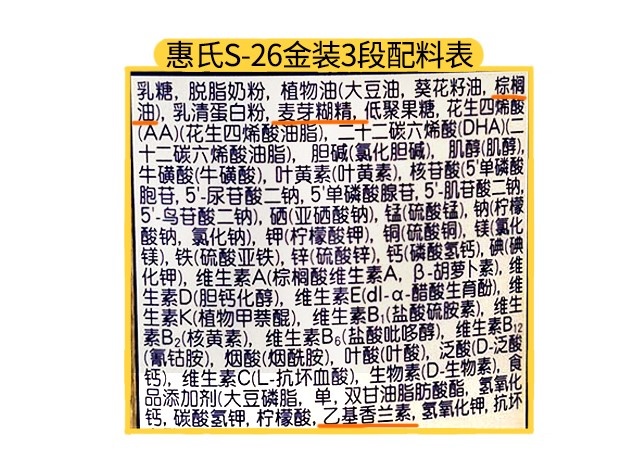 惠氏S-26金装3段配料表
乳糖, 脱脂奶粉, 植物油(大豆油, 葵花籽油, 棕榈
油), 乳清蛋白粉, 麦芽糊精, 低聚果糖, 花生四烯酸
(AA)(花生四烯酸油脂), 二十二碳六烯酸(DHA)(二
十二碳六烯酸油脂), 胆碱(氯化胆碱), 肌醇(肌醇),
牛磺酸(牛磺酸), 叶黄素(叶黄素), 核苷酸(5'单磷酸
胞苷, 5'-尿苷酸二钠, 5'单磷酸腺苷, 5'-肌苷酸二钠,
5'-鸟苷酸二钠), 硒(亚硒酸钠), 锰(硫酸锰), 钠(柠檬
酸钠, 氯化钠), 钾(柠檬酸钾), 铜(硫酸铜), 镁(氯化
镁), 铁(硫酸亚铁), 锌(硫酸锌), 钙(磷酸氢钙), 碘(碘
化钾), 维生素A(棕榈酸维生素A, β-胡萝卜素), 维
生素D(胆钙化醇), 维生素E(dl-α-醋酸生育酚), 维
生素K(植物甲萘醌), 维生素B1(盐酸硫胺素), 维生
素B2(核黄素), 维生素B6(盐酸吡哆醇), 维生素B12
(氰钴胺), 烟酸(烟酰胺), 叶酸(叶酸), 泛酸(D-泛酸
钙), 维生素C(L-抗坏血酸), 生物素(D-生物素), 食
品添加剂(大豆磷脂, 单, 双甘油脂肪酸酯, 氢氧化
钙, 碳酸氢钾, 柠檬酸, 乙基香兰素, 氢氧化钾, 抗坏